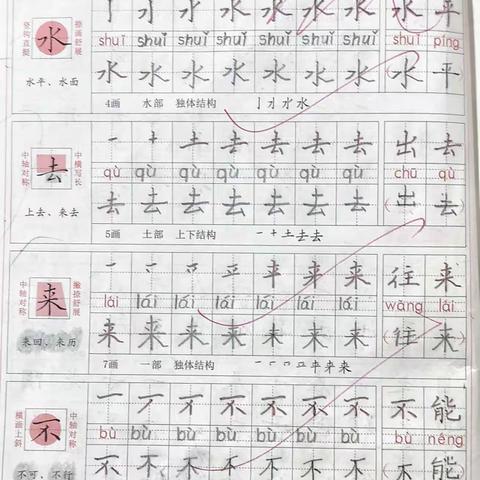 亅 水 水 水 水 水 水 水 平
竖钩直挺 水 撇画舒展
shuǐ shuǐ shuǐ shuǐ shuǐ shuǐ shuǐ shuǐ píng
水平、水面
水 水 水 水 水 水 水 (水 平
4画 水部 独体结构 亅 水 水
一 十 土 去 去 去 去 出 去
中轴对称 去 中横写长
qù qù qù qù qù qù qù chū qù
上去、来去
去 去 去 去 去 去 去 (出 去)
5画 土部 上下结构 一 十 土 去 去
一 来 来 来 往 来
中轴对称 来 撇捺舒展
lái lái lái lái lái lái lái wǎng lái
来回、来历
来 来 来 来 来 来 来 (往 来)
7画 一部 独体结构 一 平 来 来
一 不 不 不 不 不 不 能
横画上斜 不 中轴对称
bù bù bù bù bù bù bù bù néng
不可、不行
不 不 不 不 不 不 不 (不 能)